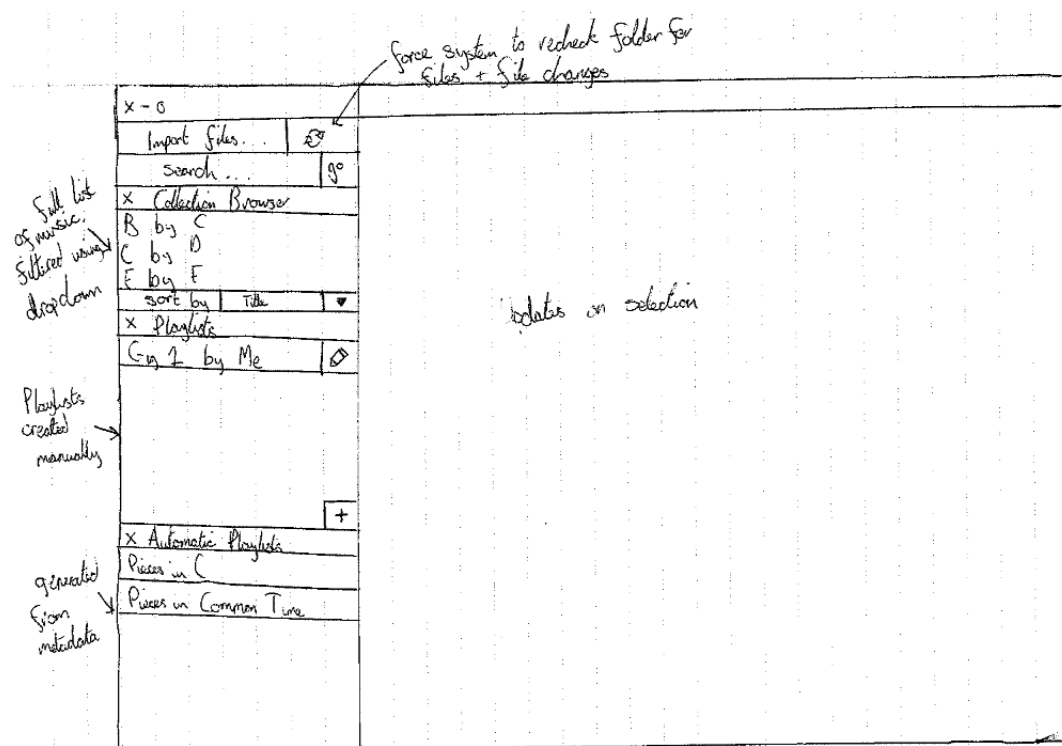 force system to recheck folder for
files + file changes
x - o
Import files...
search...
go
full list
of music,
filtered using
dropdown
x Collection Browser
B by C
C by D
E by F
sort by Title
x Playlists
Gig 1 by Me
Playlists
created
manually
+
x Automatic Playlists
Pieces in C
Pieces in Common Time
generated
from
metadata
on selection